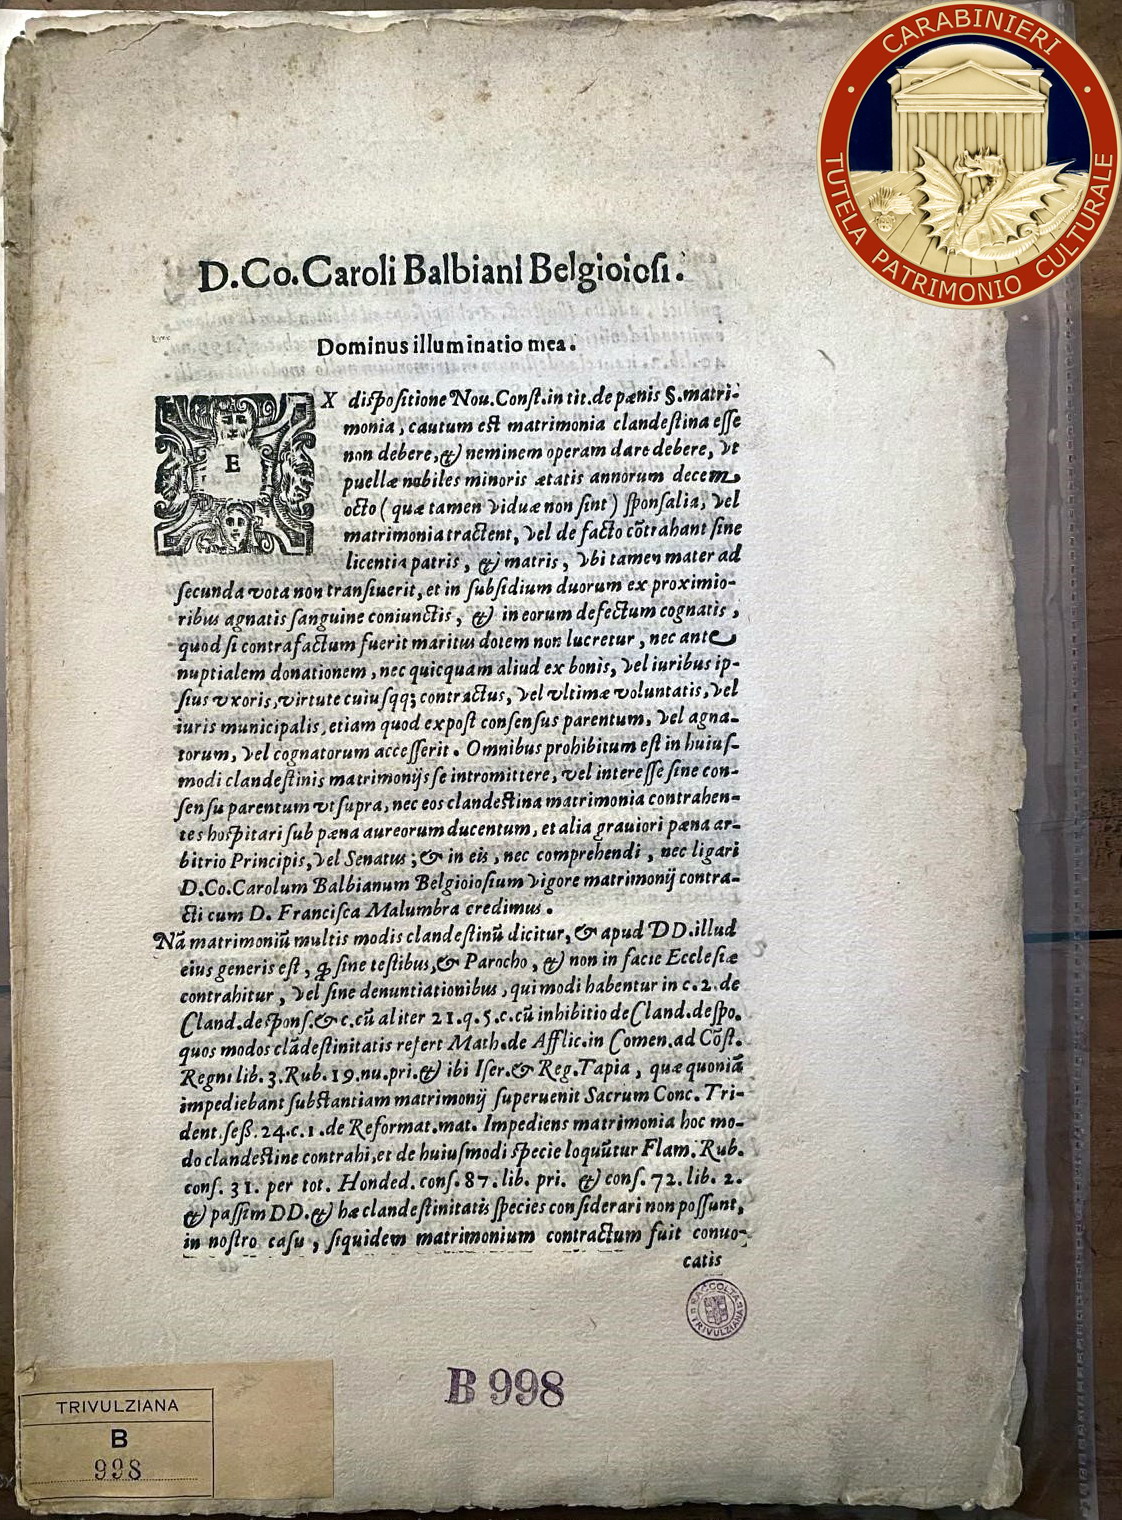 CARABINIERI
TUTELA PATRIMONIO CULTURALE
D.Co.Caroli Balbiani Belgioioſi.
Dominus illuminatio mea.
E
X diſpoſitione Nou.Conſt.in tit.de pænis §.matri-
monia, cautum eſt matrimonia clandeſtina eſſe
non debere, & neminem operam dare debere, vt
puellæ nobiles minoris ætatis annorum decem
octo ( quæ tamen viduæ non ſint ) ſponſalia, vel
matrimonia tractent, vel de facto cõtrahant ſine
licentia patris, & matris, vbi tamen mater ad
ſecunda vota non tranſiuerit, et in ſubſidium duorum ex proximio-
ribus agnatis ſanguine coniunctis, & in eorum defectum cognatis,
quod ſi contrafactum fuerit maritus dotem non lucretur, nec ante
nuptialem donationem, nec quicquam aliud ex bonis, vel iuribus ip-
ſius vxoris, virtute cuiuſqq; contractus, vel vltimæ voluntatis, vel
iuris municipalis, etiam quod expoſt conſenſus parentum, vel agna-
torum, vel cognatorum acceſſerit. Omnibus prohibitum eſt in huiuſ-
modi clandeſtinis matrimonijs ſe intromittere, vel intereſſe ſine con-
ſenſu parentum vt ſupra, nec eos clandeſtina matrimonia contrahen-
tes hoſpitari ſub pæna aureorum ducentum, et alia grauiori pæna ar-
bitrio Principis, vel Senatus; & in eis, nec comprehendi, nec ligari
D.Co.Carolum Balbianum Belgioioſium vigore matrimonij contra-
cti cum D. Franciſca Malumbra credimus.
Nã matrimoniũ multis modis clandeſtinũ dicitur, & apud DD.illud
eius generis eſt, ꝙ ſine teſtibus, & Parocho, & non in facie Eccleſiæ
contrahitur, vel ſine denuntiationibus, qui modi habentur in c.2.de
Cland.deſponſ.& c.cũ aliter 21.q.5.c.cũ inhibitio de Cland.deſpo.
quos modos clãdeſtinitatis refert Math.de Afflic.in Comen.ad Cõſt.
Regni lib.3.Rub.19.nu.pri.& ibi Iſer.& Reg.Tapia, quæ quoniã
impediebant ſubſtantiam matrimonij ſuperuenit Sacrum Conc.Tri-
dent.ſeß.24.c.1.de Reformat.mat. Impediens matrimonia hoc mo-
do clandeſtine contrahi, et de huiuſmodi ſpecie loquũtur Flam.Rub.
conſ. 31. per tot. Honded. conſ. 87. lib. pri. & conſ. 72. lib. 2.
& paſſim DD.& hæ clandeſtinitatis ſpecies conſiderari non poſſunt,
in noſtro caſu, ſiquidem matrimonium contractum fuit conuo-
catis
RACCOLTA TRIVULZIANA
B 998
TRIVULZIANA
B
998